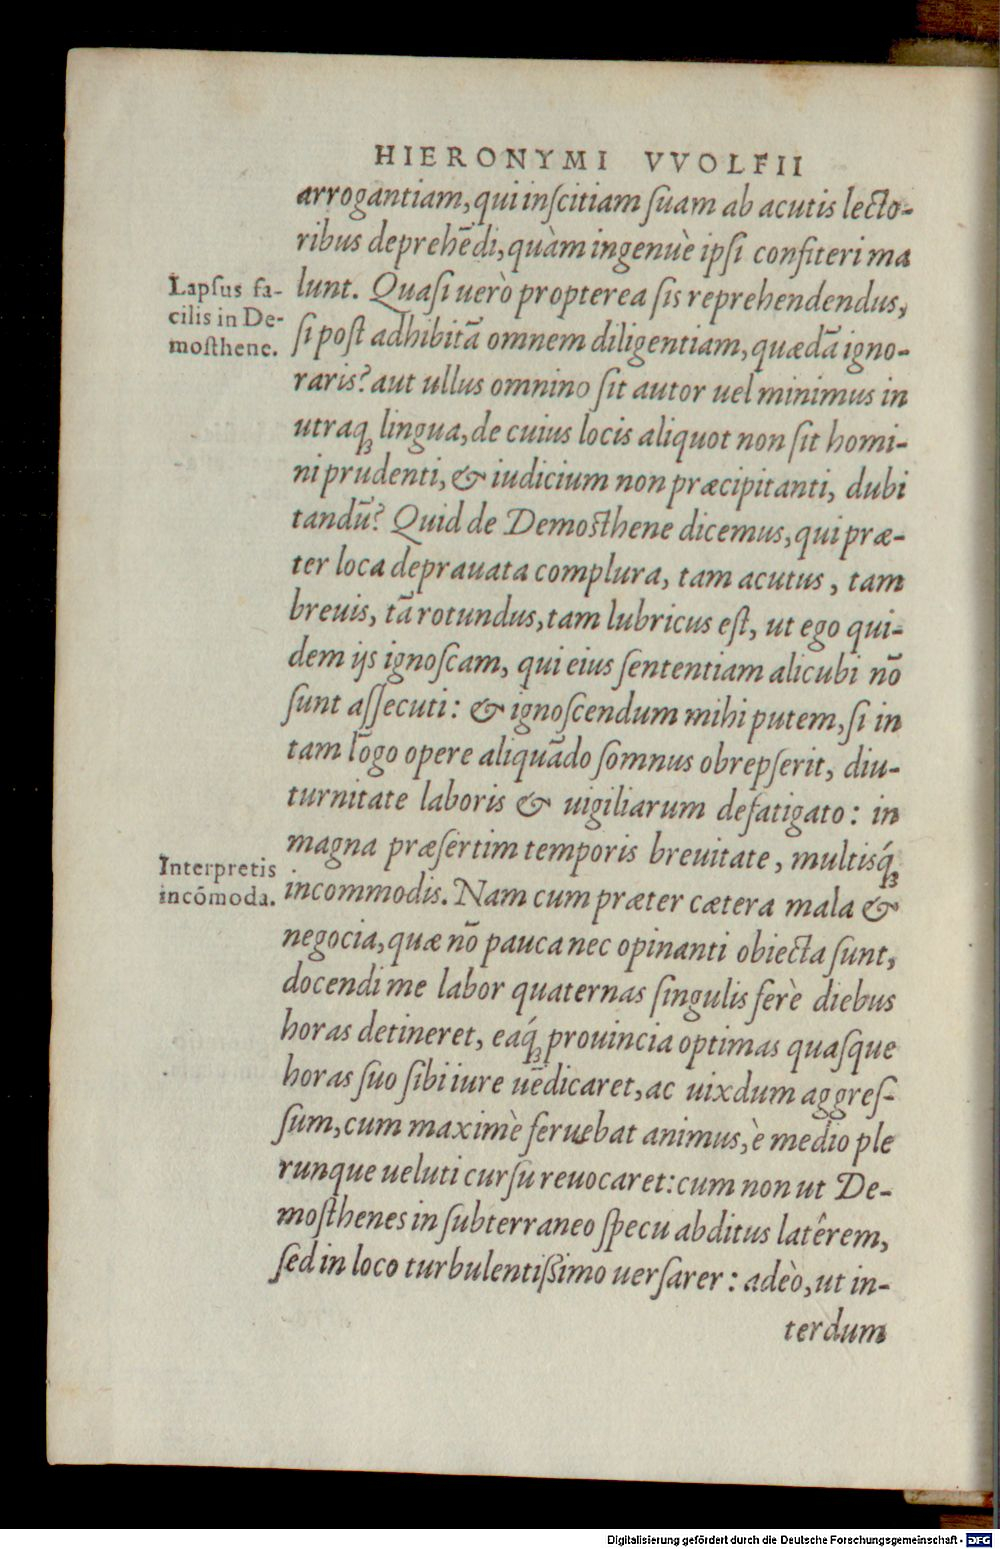 HIERONYMI VVOLFII
arrogantiam, qui inſcitiam ſuam ab acutis lecto-
ribus deprehēdi, quàm ingenuè ipſi confiteri ma
lunt. Quaſi uerò propterea ſis reprehendendus,
ſi poſt adhibitā omnem diligentiam, quædā igno-
raris? aut ullus omnino ſit autor uel minimus in
utraq́ꝫ lingua, de cuius locis aliquot non ſit homi-
ni prudenti, & iudicium non præcipitanti, dubi
tandū? Quid de Demoſthene dicemus, qui præ-
ter loca deprauata complura, tam acutus, tam
breuis, tā rotundus, tam lubricus eſt, ut ego qui-
dem ijs ignoſcam, qui eius ſententiam alicubi nō
ſunt aſſecuti: & ignoſcendum mihi putem, ſi in
tam lōgo opere aliquādo ſomnus obrepſerit, diu-
turnitate laboris & uigiliarum defatigato: in
magna præſertim temporis breuitate, multisq́ꝫ
incommodis. Nam cum præter cætera mala &
negocia, quæ nō pauca nec opinanti obiecta ſunt,
docendi me labor quaternas ſingulis ferè diebus
horas detineret, eaq́ꝫ prouincia optimas quaſque
horas ſuo ſibi iure uēdicaret, ac uixdum aggreſ-
ſum, cum maximè feruebat animus, è medio ple
runque ueluti curſu reuocaret: cum non ut De-
moſthenes in ſubterraneo ſpecu abditus latêrem,
ſed in loco turbulentißimo uerſarer: adeò, ut in-
terdum
Lapſus fa-
cilis in De-
moſthene.
Interpretis
incōmoda.
Digitalisierung gefördert durch die Deutsche Forschungsgemeinschaft - DFG